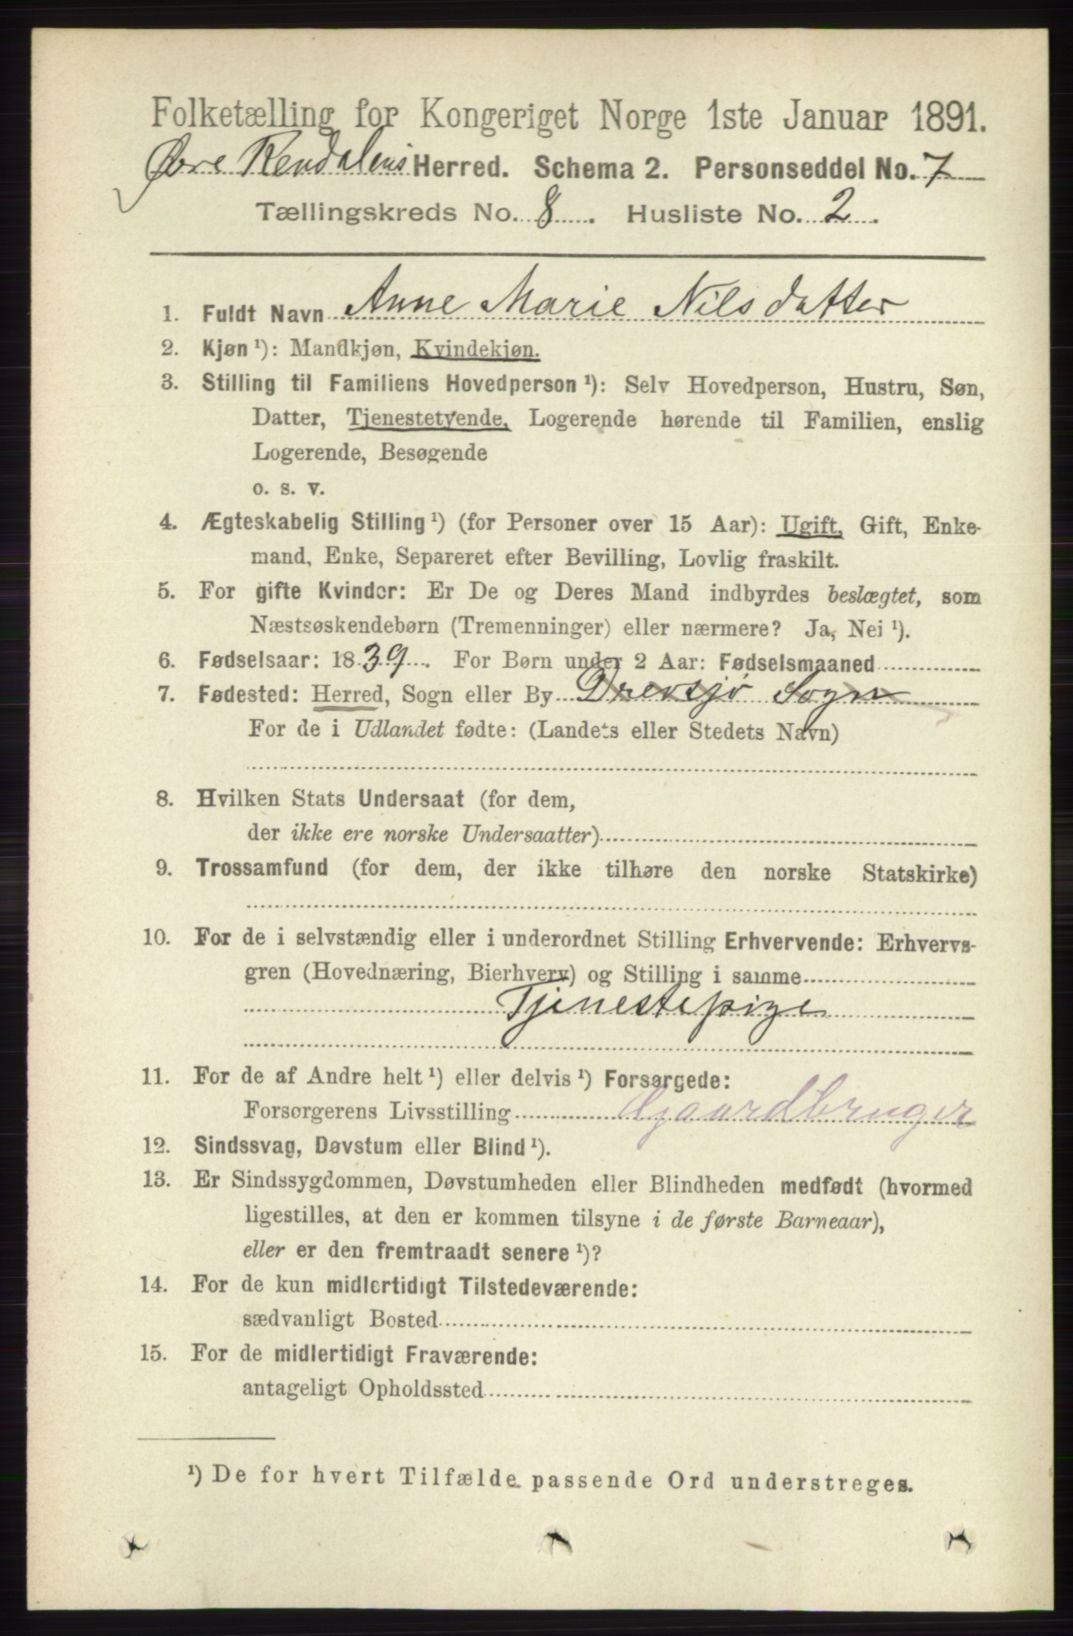 Folketælling for Kongeriget Norge 1ste Januar 1891.
Øvre Rendalens Herred. Schema 2. Personseddel No. 7
Tællingskreds No. 8. Husliste No. 2.
1. Fuldt Navn Anne Marie Nilsdatter
2. Kjøn ¹): Mandkjøn, Kvindekjøn.
3. Stilling til Familiens Hovedperson ¹): Selv Hovedperson, Hustru, Søn,
Datter, Tjenestetyende, Logerende hørende til Familien, enslig
Logerende, Besøgende
o. s. v.
4. Ægteskabelig Stilling ¹) (for Personer over 15 Aar): Ugift, Gift, Enke-
mand, Enke, Separeret efter Bevilling, Lovlig fraskilt.
5. For gifte Kvinder: Er De og Deres Mand indbyrdes beslægtet, som
Næstsøskendebørn (Tremenninger) eller nærmere? Ja, Nei ¹).
6. Fødselsaar: 1839. For Børn under 2 Aar: Fødselsmaaned
7. Fødested: Herred, Sogn eller By Drevsjø Sogn
For de i Udlandet fødte: (Landets eller Stedets Navn)
8. Hvilken Stats Undersaat (for dem,
der ikke ere norske Undersaatter)
9. Trossamfund (for dem, der ikke tilhøre den norske Statskirke)
10. For de i selvstændig eller i underordnet Stilling Erhvervende: Erhvervs-
gren (Hovednæring, Bierhverv) og Stilling i samme
Tjenestepige
11. For de af Andre helt ¹) eller delvis ¹) Forsørgede:
Forsørgerens Livsstilling Gaardbruger
12. Sindssvag, Døvstum eller Blind ¹).
13. Er Sindssygdommen, Døvstumheden eller Blindheden medfødt (hvormed
ligestilles, at den er kommen tilsyne i de første Barneaar),
eller er den fremtraadt senere ¹)?
14. For de kun midlertidigt Tilstedeværende:
sædvanligt Bosted
15. For de midlertidigt Fraværende:
antageligt Opholdssted
¹) De for hvert Tilfælde passende Ord understreges.